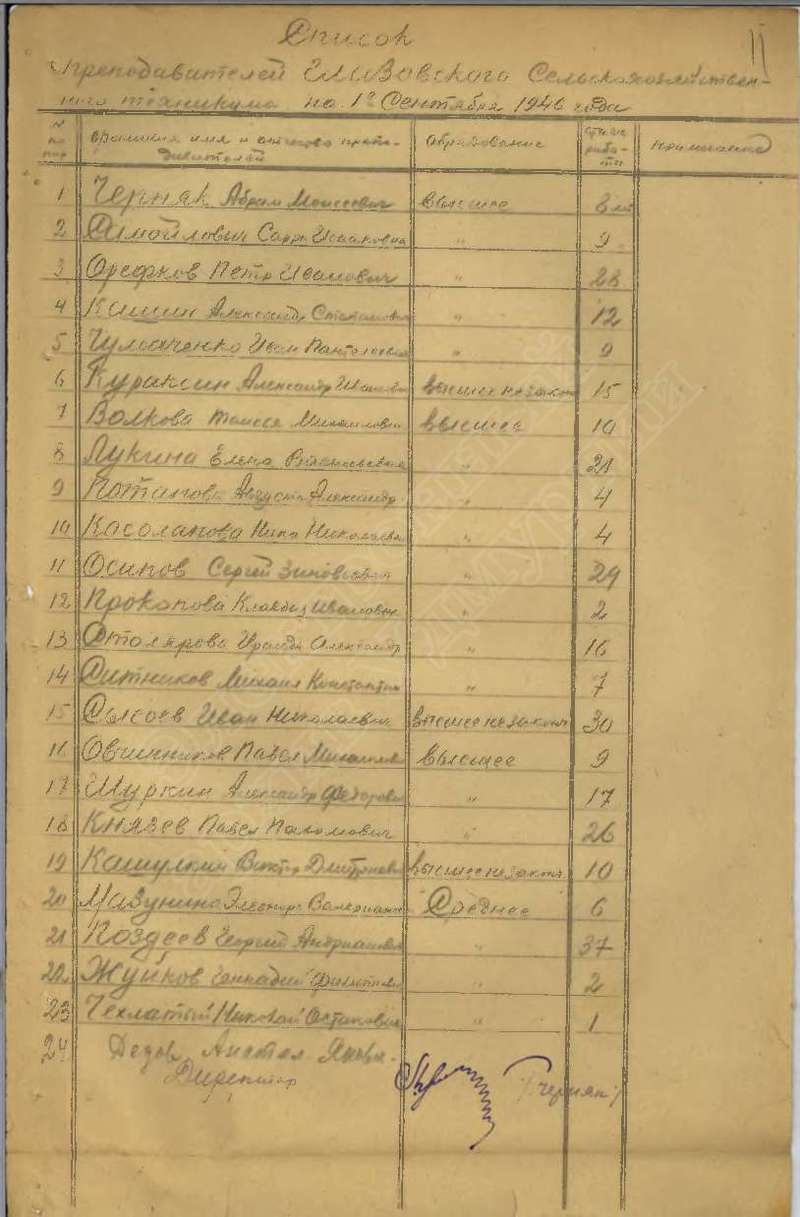 Список
преподавателей Елизовского Сельскохозяйствен-
ного техникума на 1е Сентября 1946 года
N по пор | Фамилия имя и отчество препо-давателей | Образование | Стаж рабо-ты | Примечание
1 Черняк Абрам Моисеевич высшее 8 лет
2 Самойлович Сарра Исааковна " 9
3 Орефков Петр Иванович " 28
4 Кашин Александр Степанович " 12
5 Чумаченко Иван Пантелеевич " 9
6 Кураксин Александр Иванови высшее не законч 15
7 Волкова Таисса Михайловн высшее 10
8 Лукина Елена Васильевна " 21
9 Потапова Августа Александр. " 4
10 Касолапова Нина Николаевна " 4
11 Осипов Сергей Зиновьевич " 29
12 Прокопова Клавдия Ивановн " 2
13 Столярова Ираида Александр " 16
14 Ситников Михаил Константин " 7
15 Сысоев Иван Николаевич высшее не законч 30
16 Овчинников Павел Михайлов высшее 9
17 Шуркин Александр Федорови " 17
18 Князев Павел Пахомович " 26
19 Кашулкин Виктор Дмитриеви высшее не законч. 10
20 Мазунина Элеонора Валериан Среднее 6
21 Поздеев Георгий Андрианови " 37
22 Жуйков Геннадий " 2
23 Чехлатый Николай Остапович " 1
24 Дедов Анатол Яковл.
Директор /Черняк/
II